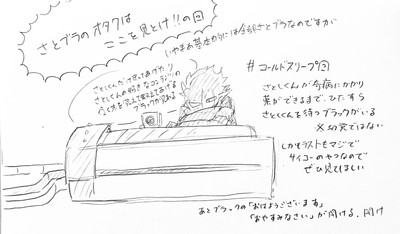 さとブラのオタクは
ここを見とけ!!の回
いやまあ基本的には全部さとブラなのですが
さとしくんが
さとしくんの好きなコンテンツの
ブラックが見れる
#コールドスリープ回
さとしくんが今病にかかり
薬ができるまで、ひたすら
さとくんを待つブラックがいる
※幼児ではない
しかもラストもマジで
サイコーのやつなので
ぜひ見てほしい
あとブラックの「おはようございます」
「おやすみなさい」が聞ける、聞け